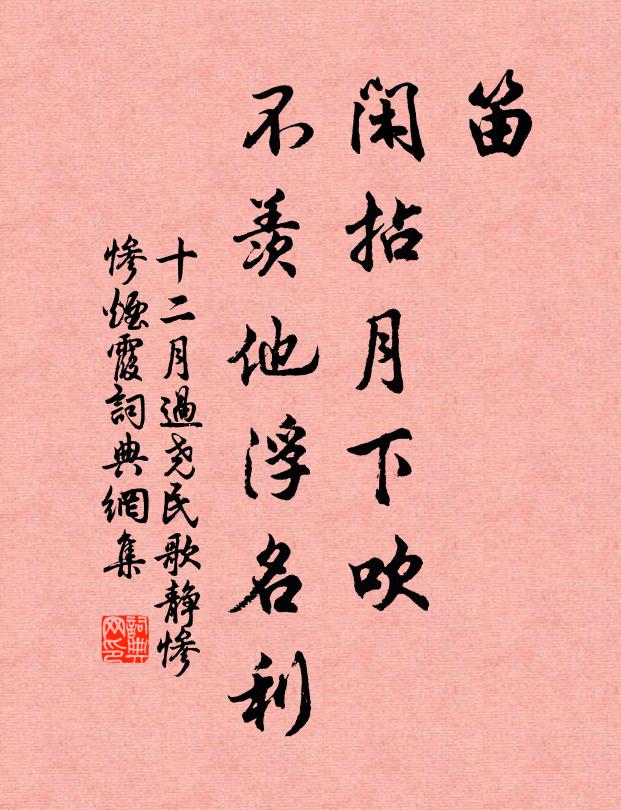 笛
閑拈月下吹
不羨他浮名利
十二月過尧民歌静慘
慘煙霞詞典網集
詞典
网印